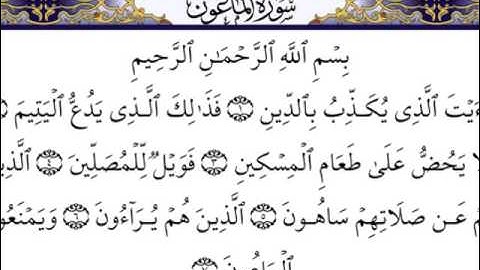 سورة الماعون
بِسْمِ ٱللَّهِ ٱلرَّحْمَـٰنِ ٱلرَّحِيمِ
ءَيْتَ ٱلَّذِى يُكَذِّبُ بِٱلدِّينِ ١ فَذَٰلِكَ ٱلَّذِى يَدُعُّ ٱلْيَتِيمَ
لَا يَحُضُّ عَلَىٰ طَعَامِ ٱلْمِسْكِينِ ٣ فَوَيْلٌ لِّلْمُصَلِّينَ ٤ ٱلَّذِ
مْ عَن صَلَاتِهِمْ سَاهُونَ ٥ ٱلَّذِينَ هُمْ يُرَآءُونَ ٦ وَيَمْنَعُو
ٱلْمَاعُونَ ٧